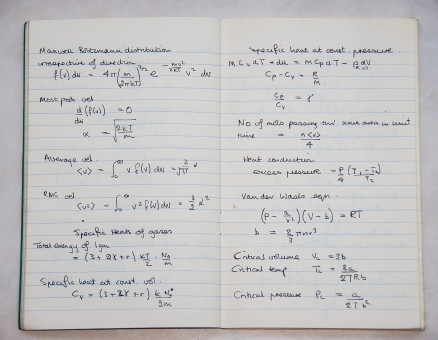 Maxwell Boltzmann distribution
irrespective of direction
f(v) dv = 4π (m/2πkT)^3/2 e^-mv²/2kT v² dv
Most prob vel
d/dv (f(v)) = 0
α = √(2kT/m)
Average vel.
<v> = ∫₀^∞ v f(v) dv = 2/√π α
RMS vel
<v²> = ∫₀^∞ v² f(v) dv = 3/2 α²
Specific Heats of gases
Total energy of 1gm
= (3+2γ+r) kT/2 . N₀/m
Specific heat at const. vol.
Cv = (3+2γ+r) k N₀/2m
Specific heat at const pressure.
m Cv dT = du = m Cp dT − dV
Cp − Cv = R/M
Cp/Cv = γ
No of mols passing thro' unit area in unit
time = n<v>/4
Heat conduction
excess pressure = P/4 (T₁ − T₂)/T₂
Van der Waals eqn.
(P − a/v²)(V − b) = RT
b = 2/3 π n r³
Critical volume Vc = 3b
Critical temp Tc = 8a/27Rb
Critical pressure Pc = a/27b²